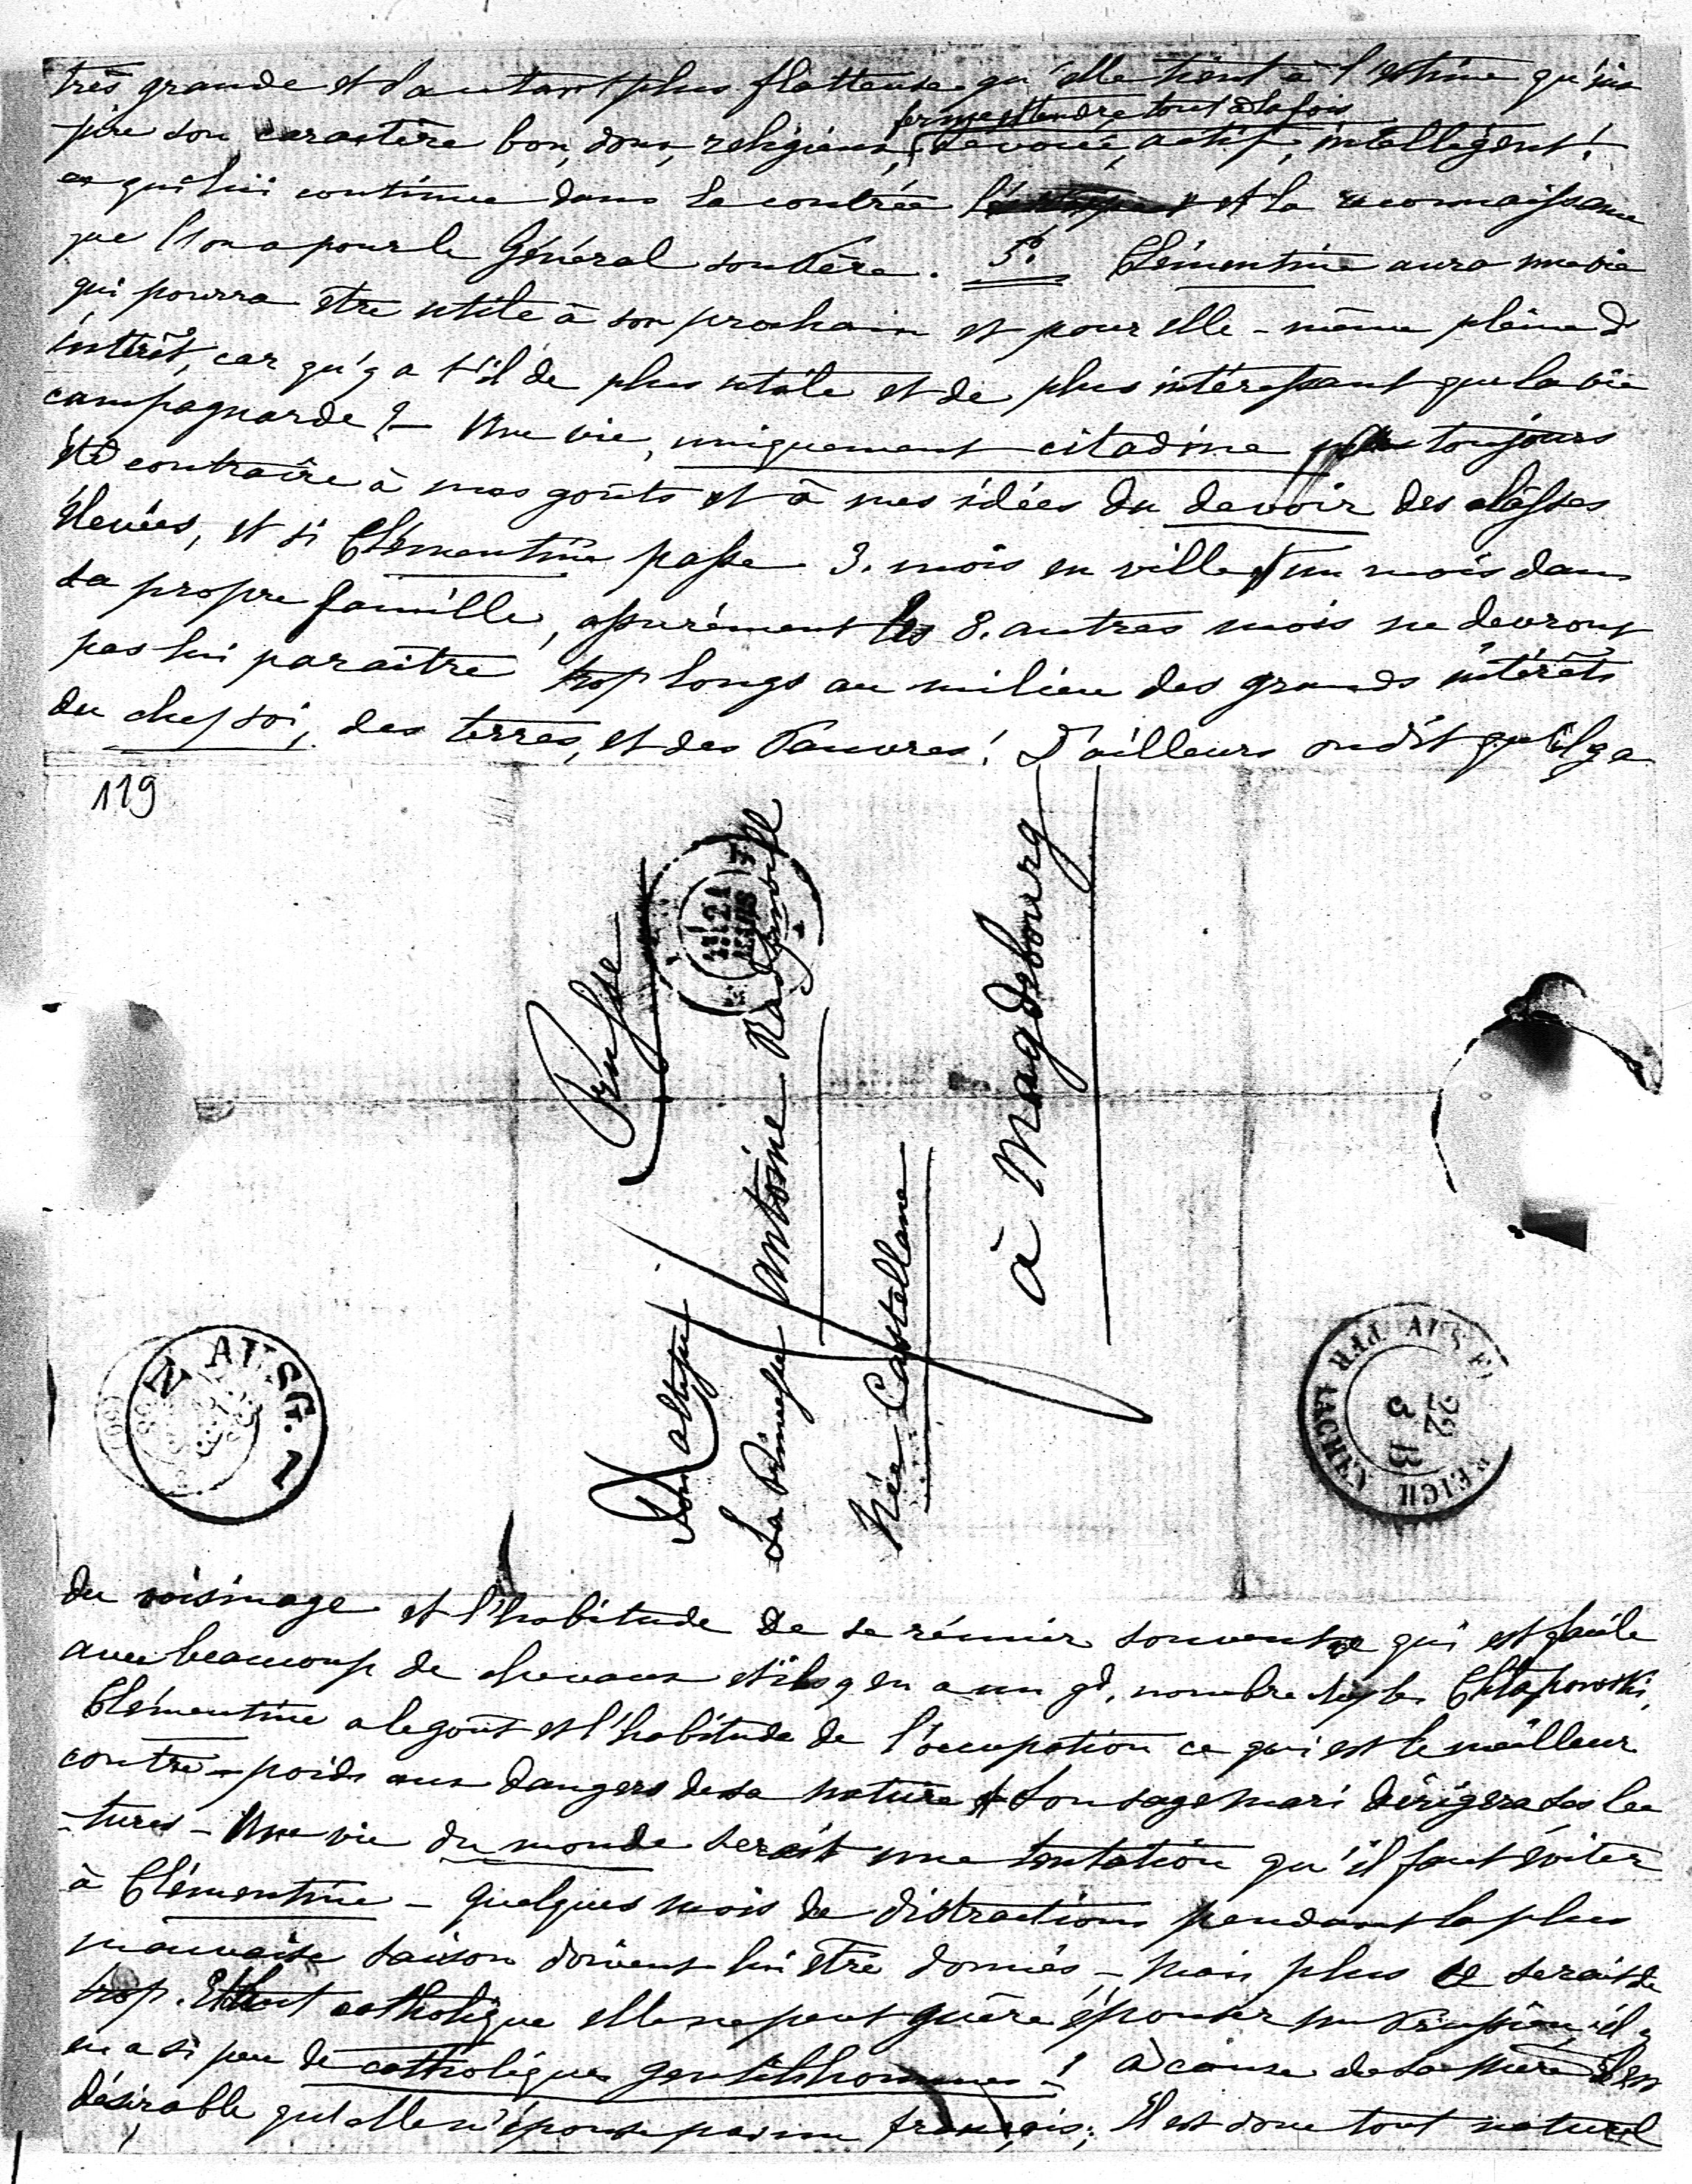 très grande et d'autant plus flatteuse qu'elle tient à l'estime qu'ins
ferme et tendre tout à la fois
pire son caractère bon, doux, religieux, dévoué, actif, intelligent!
ce qui lui continue dans la contrée et la reconnaissance
que l'on a pour le Général son Père. 5° Clémentine aura une vie
qui pourra être utile à son prochain et pour elle-même pleine d'
intérêt, car qu'y a t-il de plus utile et de plus intéressant que la vie
campagnarde? - Une vie, uniquement citadine toujours
été contraire à mes goûts et à mes idées du devoir des classes
élevées, et si Clémentine passe 3. mois en ville et un mois dans
sa propre famille, assurément les 8. autres mois ne devront
pas lui paraître trop longs au milieu des grands intérêts
du chez soi, des terres, et des Pauvres! D'ailleurs on dit qu'il y a
119
Prusse
Madame
La Princesse Antoine Radziwill
Née Castellane
à Magdebourg
AUSG. 1
N
22 3 13
du voisinage et l'habitude de se réunir souvent ce qui est facile
avec beaucoup de chevaux et il y en a un gd. nombre chez les Chlapowski.
Clémentine a le goût et l'habitude de l'occupation ce qui est le meilleur
contre-poids aux dangers de sa nature et son sage mari dirigera ses lec
-tures - Une vie du monde serait une tentation qu'il faut éviter
à Clémentine - quelques mois de distractions pendant la plus
mauvaise saison doivent lui être donnés - mais plus ce serait de
trop. Etant catholique elle ne peut guère épouser un Prussien, il y
en a si peu de catholiques gentilshommes! à cause de sa mère il est
désirable qu'elle n'épouse pas un français; Il est donc tout naturel